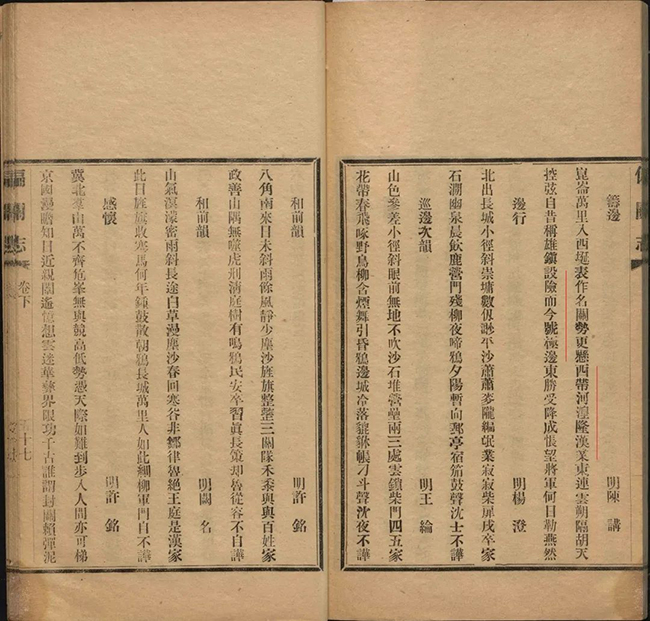 偏關志
籌邊 明陳 講
崑崙萬里入西埏表作名關勢更懸西帶河湟隆漢業東連雲朔隔胡天
控弦自昔稱雄鎮設險而今號極邊東勝受降成悵望將軍何日勒燕然
邊行 明楊 澄
北出長城小徑斜崇墉數仭渺平沙蕭蕭麥隴編氓業寂寂柴扉戍卒家
石澗幽泉晨飲鹿營門殘柳夜啼鴉夕陽暫向郵亭宿笳鼓聲沈士不譁
巡邊次韻 明王 綸
山色參差小徑斜眼前無地不吹沙石堆營壘兩三處雲鎖柴門四五家
花帶春飛啄野鳥柳含煙舞引昏鴉邊城冷落貔貅帳刁斗聲沈夜不譁
和前韻 明許 銘
八角南來日未斜雨餘風靜少塵沙旌旗整整三關隊禾黍與與百姓家
政善山隅無噬虎刑清庭樹有鳴鴉民安卒習眞長策却喜從容不自譁
和前韻 明闕 名
山氣溟濛密雨斜長途白草漫塵沙春回寒谷非鄒律魯絕王庭是漢家
此日旌旗收塞馬何年鐘鼓散朝鴉長城萬里人如此細柳軍門自不譁
感懷 明許 銘
冀北羣山萬不齊危峯無與競高低勢憑天際如難到步入人間亦可梯
京國漫瞻知日近親闈遙憶想雲迷華彝界限功千古誰謂封關賴彈泥
偏關志 卷下 十七